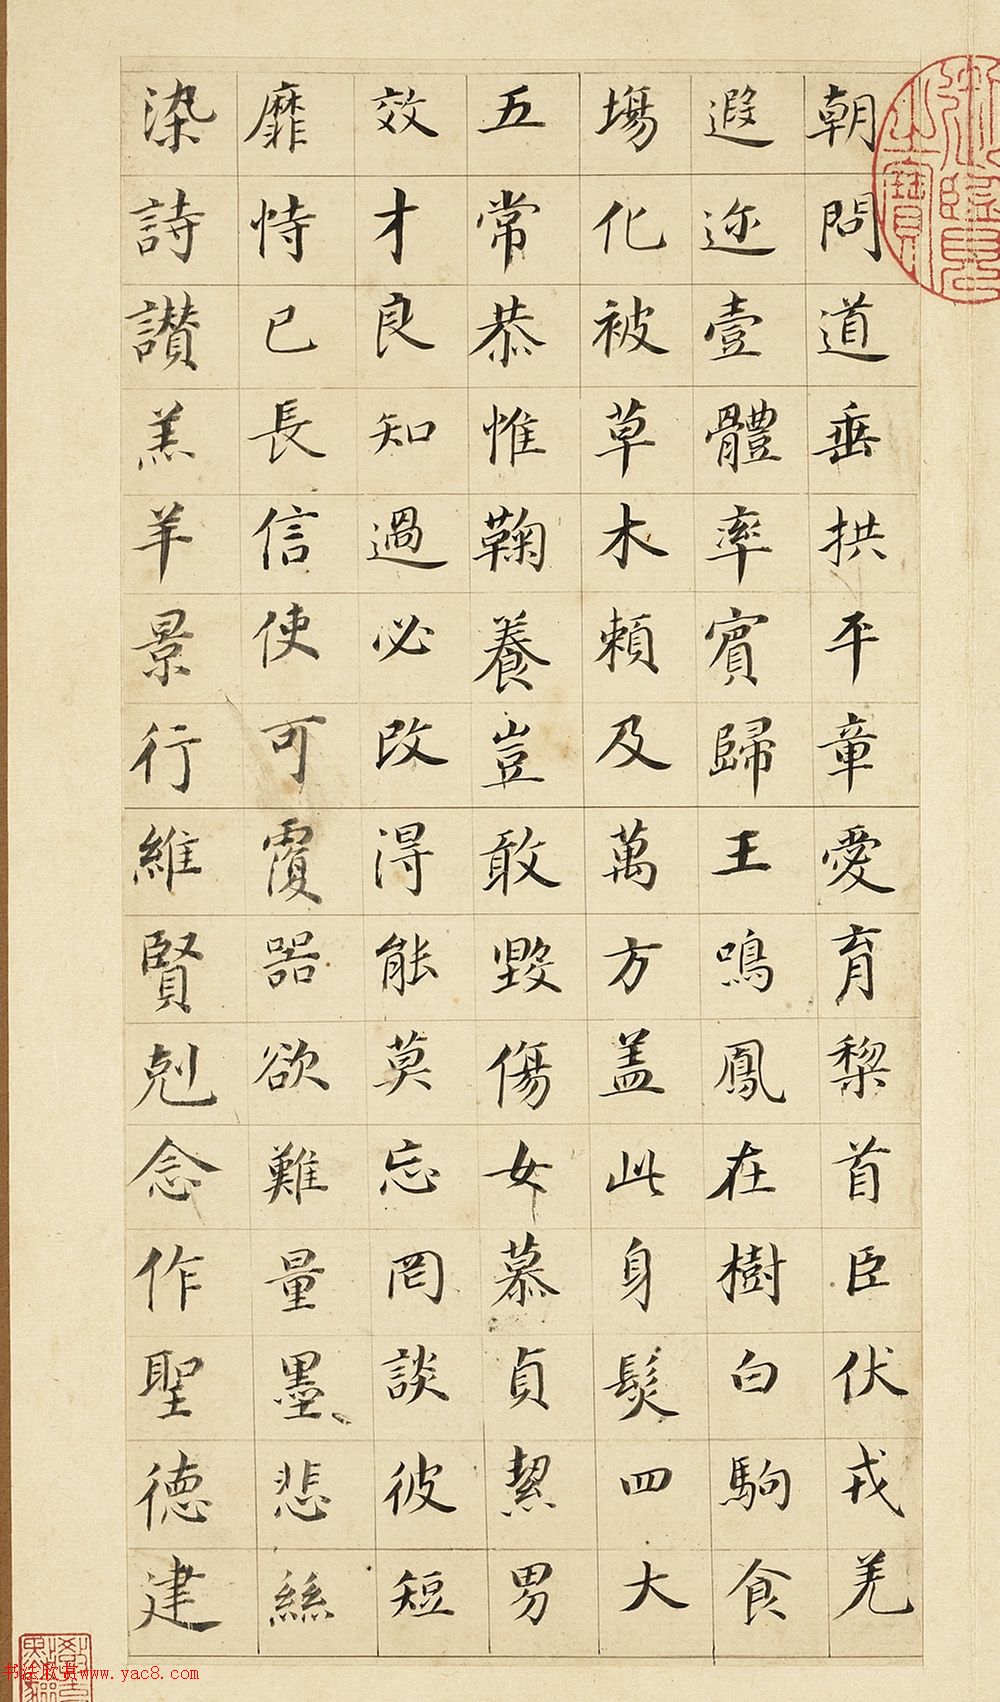 朝問道垂拱平章愛育黎首臣伏戎羌
遐迩壹體率賓歸王鳴鳳在樹白駒食
塲化被草木賴及萬方盖此身髮四大
五常恭惟鞠養豈敢毀傷女慕貞絜男
效才良知過必改得能莫忘罔談彼短
靡恃已長信使可覆器欲難量墨悲絲
染詩讃羔羊景行維賢剋念作聖德建
书法欣赏www.yac8.com